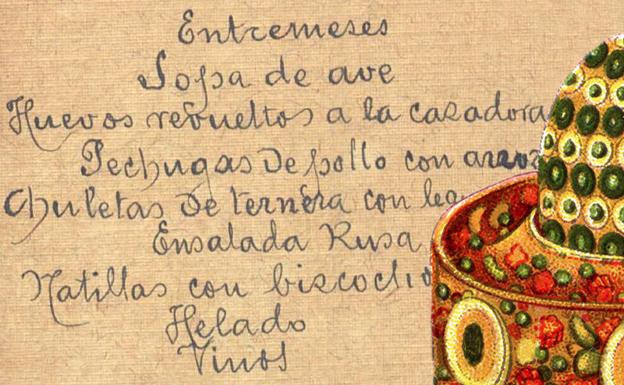 Entremeses
Sopa de ave
Huevos revueltos a la cazadora
Pechugas de pollo con arroz
Chuletas de ternera con leg
Ensalada Rusa
Natillas con biscocho
Helado
Vinos